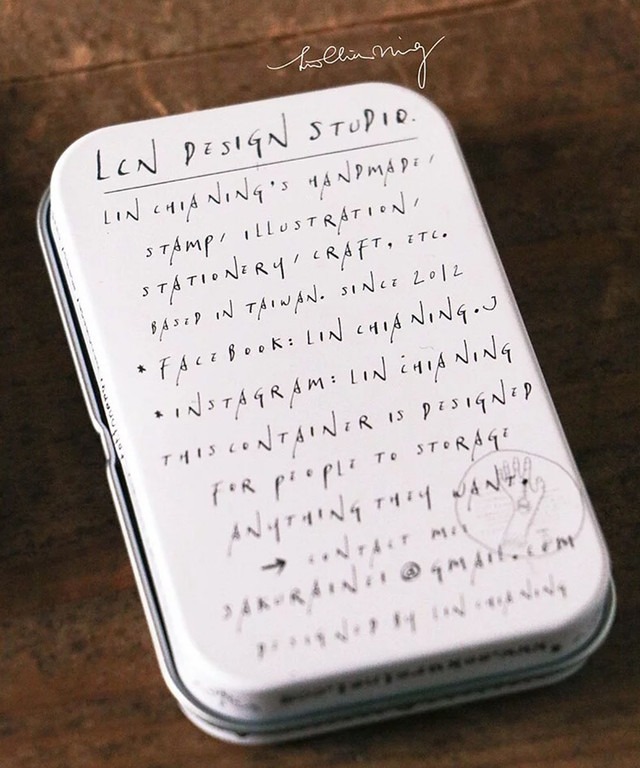 LCN DESIGN STUDIO.
LIN CHIANING'S HANDMADE/
STAMP/ ILLUSTRATION/
STATIONERY/ CRAFT, ETC.
BASED IN TAIWAN. SINCE 2012
* FACEBOOK: LIN CHIANING.J
* INSTAGRAM: LIN CHIANING
THIS CONTAINER IS DESIGNED
FOR PEOPLE TO STORAGE
ANYTHING THEY WANT.
→ CONTACT ME:
SAKURAINCI @ GMAIL.COM
DESIGNED BY LIN CHIANING